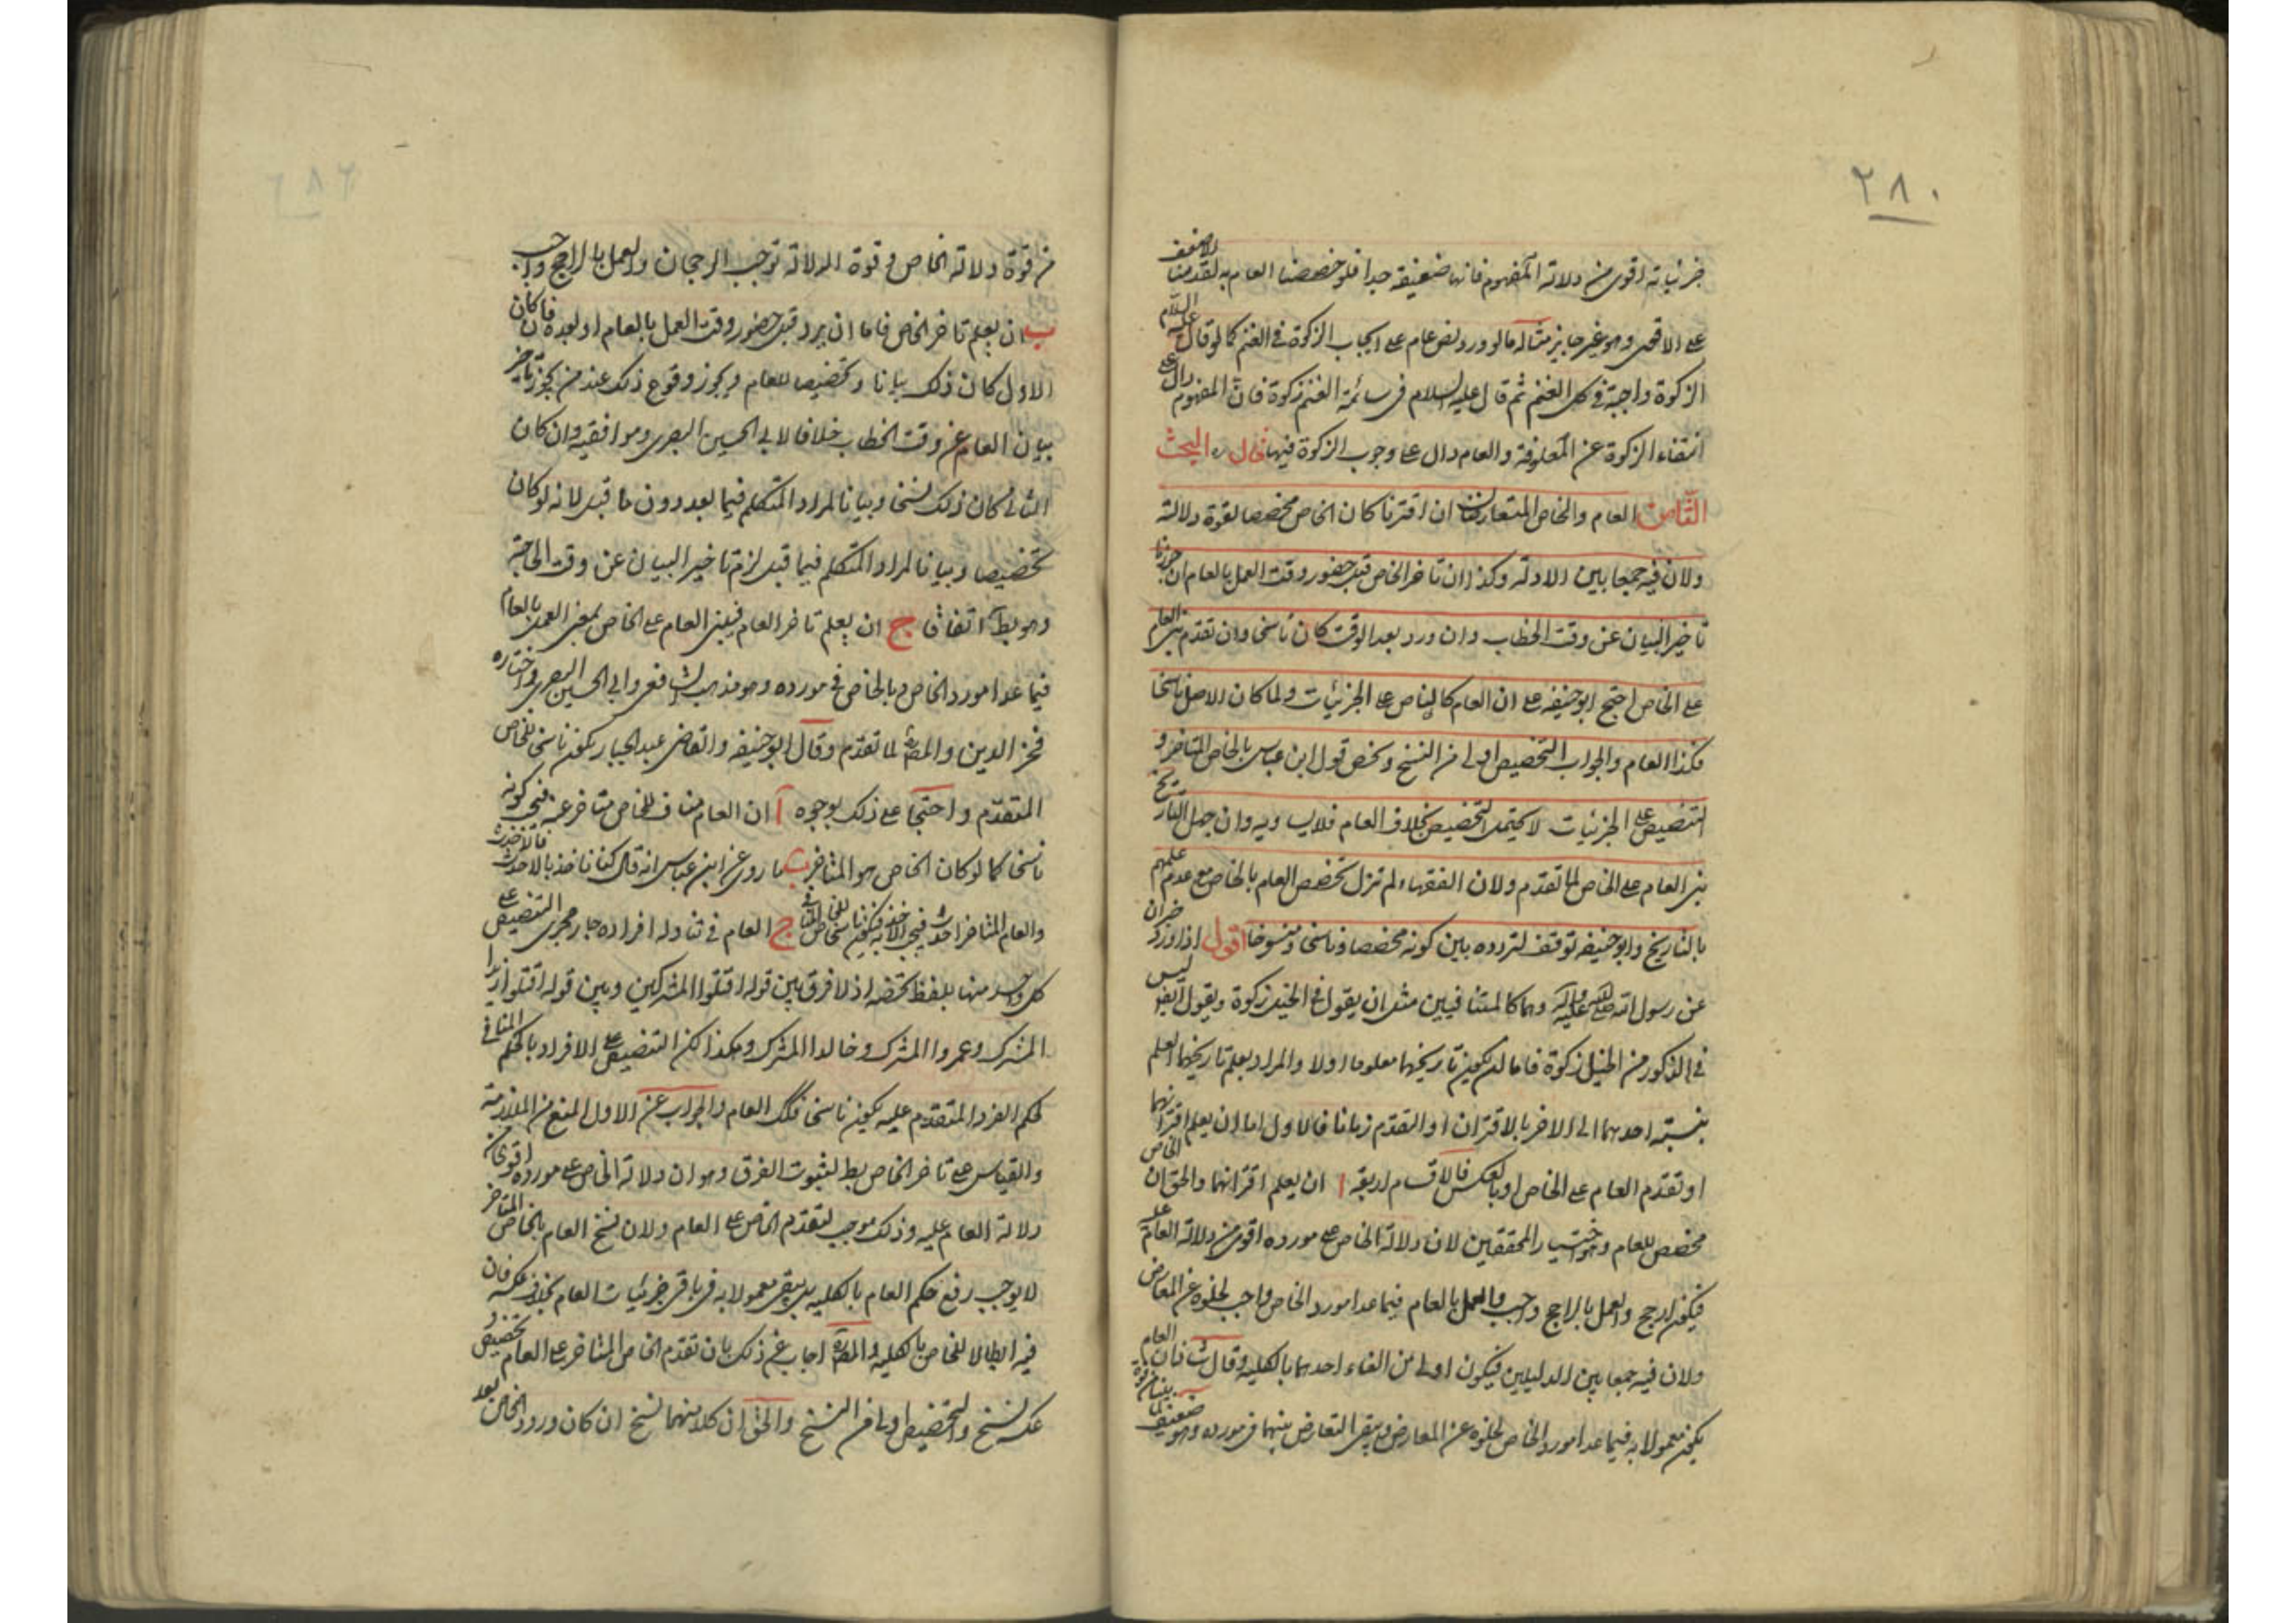 ٢٨٠
جزئياته اقوى من دلالة المفهوم فانها ضعيفة جدا فلو خصصنا العام به لقدمنا الاضعف
على الاقوى وهو غير جايز مثاله ما لو ورد نص عام على ايجاب الزكوة في الغنم كما لو قال عليه السلام
الزكوة واجبة في كل الغنم ثم قال عليه السلام في سائمة الغنم زكوة فان المفهوم دال على
انتفاء الزكوة عن المعلوفة والعام دال على وجوب الزكوة فيها قال ره البحث
الثامن العام والخاص المتعارضان ان اقترنا كان الخاص مخصصا لقوة دلالته
ولان فيه جمعا بين الادلة وكذا ان تاخر الخاص قبل حضور وقت العمل بالعام ان جوزنا
تاخير البيان عن وقت الخطاب وان ورد بعد الوقت كان ناسخا وان تقدم بنى العام
على الخاص احتج ابو حنيفه على ان العام كالناص على الجزئيات ولما كان الاصل ناسخا
فكذا العام والجواب التخصيص اولى من النسخ ونخص قول ابن عباس بالخاص المتاخر و
التنصيص على الجزئيات لا يحتمل التخصيص بخلاف العام فلا يساويه وان جهل التاريخ
بنى العام على الخاص لما تقدم ولان الفقهاء لم تزل تخصص العام بالخاص مع عدم علمهم
بالتاريخ وابو حنيفه توقف لتردده بين كونه مخصصا وناسخا ومنسوخا اقول اذا ورد خبران
عن رسول الله صلى الله عليه وآله وهما كالمتنافيين مثل ان يقول في الخيل زكوة ويقول ايضا ليس
في الذكور من الخيل زكوة فاما ان يكون تاريخهما معلوما او لا والمراد بعلم تاريخهما العلم
بنسبة احدهما الى الاخر بالاقتران او التقدم زمانا فالاول اما ان يعلم اقترانهما
او تقدم العام على الخاص او بالعكس فالاقسام اربعة ا ان يعلم اقترانهما والحق ان الخاص
مخصص للعام وهو اختيار المحققين لان دلالة الخاص على مورده اقوى من دلالة العام عليه
فيكون ارجح والعمل بالراجح واجب والعمل بالعام فيما عدا مورد الخاص واجب لخلوه عن المعارض
ولان فيه جمعا بين الدليلين فيكون اولى من الغاء احدهما بالكلية وقال فان العام
يكون معمولا به فيما عدا مورد الخاص لخلوه عن المعارض ويبقى التعارض بينهما في مورده وهو ضعيف لما
من قوة دلالة الخاص وقوة الدلالة توجب الرجحان والعمل بالراجح واجب
ب ان يعلم تاخر الخاص فاما ان يرد قبل حضور وقت العمل بالعام او بعده فان كان
الاول كان ذلك بيانا وتخصيصا للعام ويجوز وقوع ذلك عند من يجوز تاخير
بيان العام عن وقت الخطاب خلافا لابي الحسين البصري وموافقيه وان كان
الثاني كان ذلك نسخا وبيانا لمراد المتكلم فيما بعد دون ما قبل لانه لو كان
تخصيصا وبيانا لمراد المتكلم فيما قبل لزم تاخير البيان عن وقت الحاجة
وهو بط اتفاقا ج ان يعلم تاخر العام فيبنى العام على الخاص بمعنى العمل بالعام
فيما عدا مورد الخاص وبالخاص في مورده وهو مذهب الشافعي وابي الحسين البصري واختاره
فخر الدين والمص لما تقدم وقال ابو حنيفه والقاضي عبد الجبار يكون ناسخا للخاص
المتقدم واحتجا على ذلك بوجوه آ ان العام مناف للخاص متاخر عنه فيجب كونه
ناسخا كما لو كان الخاص هو المتاخر ب ما روي عن ابن عباس انه قال كنا ناخذ بالاحدث فالاحدث
والعام المتاخر احدث فيجب الاخذ به فيكون ناسخا للخاص ج العام في تناوله افراده جار مجرى التنصيص على
كل واحد منها بلفظ تخصه اذ لا فرق بين قوله اقتلوا المشركين وبين قوله اقتلوا زيدا
المشرك وعمروا المشرك وخالدا المشرك وهكذا لكن التنصيص على الافراد بالحكم المنافي
لحكم الفرد المتقدم عليه يكون ناسخا فكك العام والجواب عن الاول المنع من الملازمة
والقياس على تاخر الخاص بط لثبوت الفرق وهو ان دلالة الخاص على مورده اقوى من
دلالة العام عليه وذلك موجب لتقدم الخاص على العام ولان نسخ العام بالخاص المتاخر
لا يوجب رفع حكم العام بالكلية بل يبقى معمولا به في باقي جزئيات العام بخلاف عكسه فان
فيه ابطالا للخاص بالكلية والمص اجاب عن ذلك بان تقدم الخاص المتاخر على العام تخصيص و
عكسه نسخ والتخصيص اولى من النسخ والحق ان كلا منهما نسخ ان كان ورود الخاص بعد